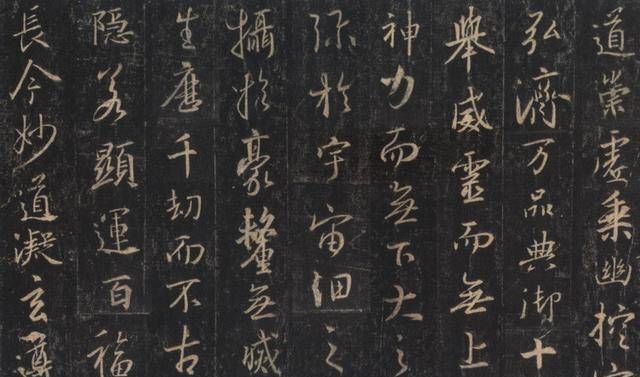 道崇虛乘幽控
弘濟万品典御十
舉威靈而無上
神力而無下大之
弥於宇宙細之
攝於豪氂無滅
生歷千劫而不古
隱若顯運百福
長今妙道凝玄遵